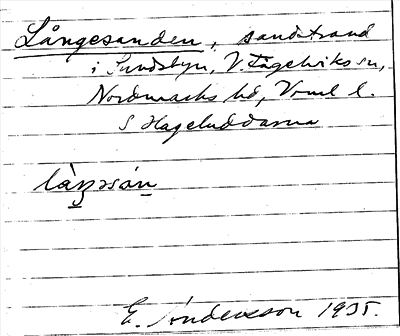 Långesanden, sandstrand
i Sundsbyn, V. Fågelviks sn,
Nordmarks hd, Vrml l.
S Hageluddarna
làŋəsánː
E. Andersson 1935.